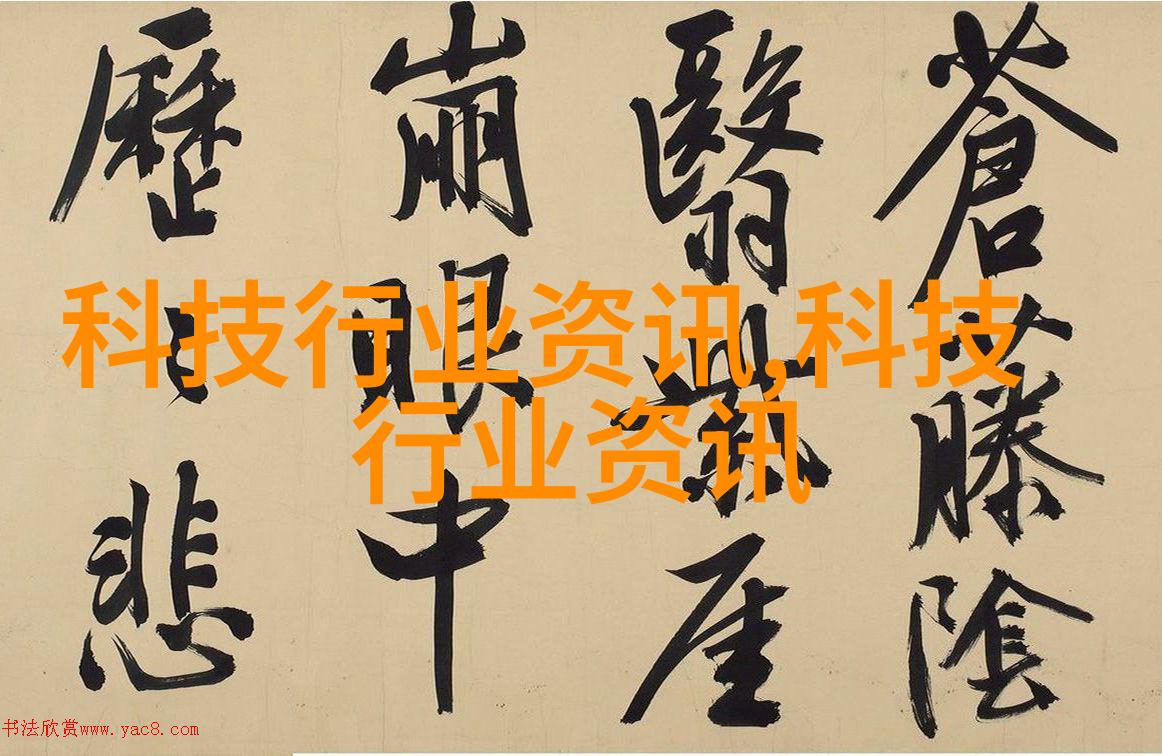 科技行业资讯,科技
行业资讯
蒼藤陰
翳厓
崩眼中
歷悲
书法欣赏www.yac8.com